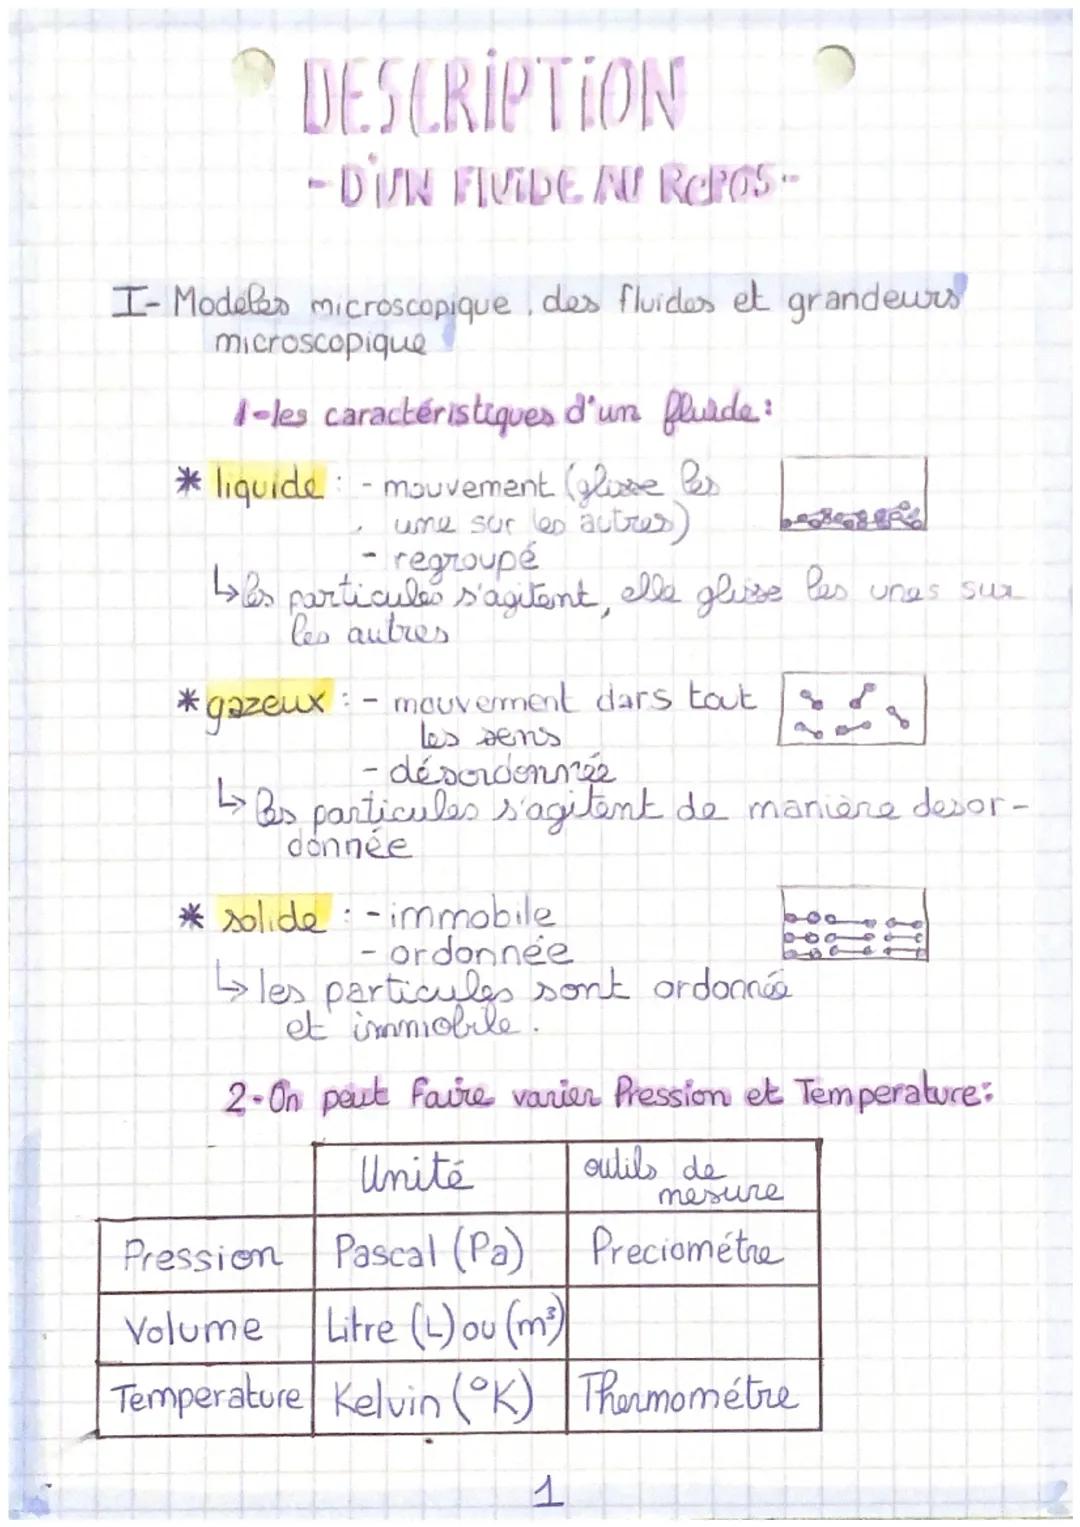 DESCRIPTION
- D'UN FLUIDE AU REPOS -
I- Modeles microscopique des fluides et grandeurs
microscopique
1-les caractéristiques d'un fluide :
* liquide : - mouvement (glisse les
une sur les autres)
- regroupé
↳ les particules s'agitent, elle glisse les unes sur
les autres
* gazeux : - mouvement dars tout
les sens
- désordonnée
↳ les particules s'agitent de manière desor-
donnée
* solide : - immobile
- ordonnée
↳ les particules sont ordonnée
et immobile.
2-On peut faire varier Pression et Temperature:
Unité outils de
mesure
Pression Pascal (Pa) Preciométre
Volume Litre (L) ou (m³)
Temperature Kelvin (°K) Thermométre
1
2